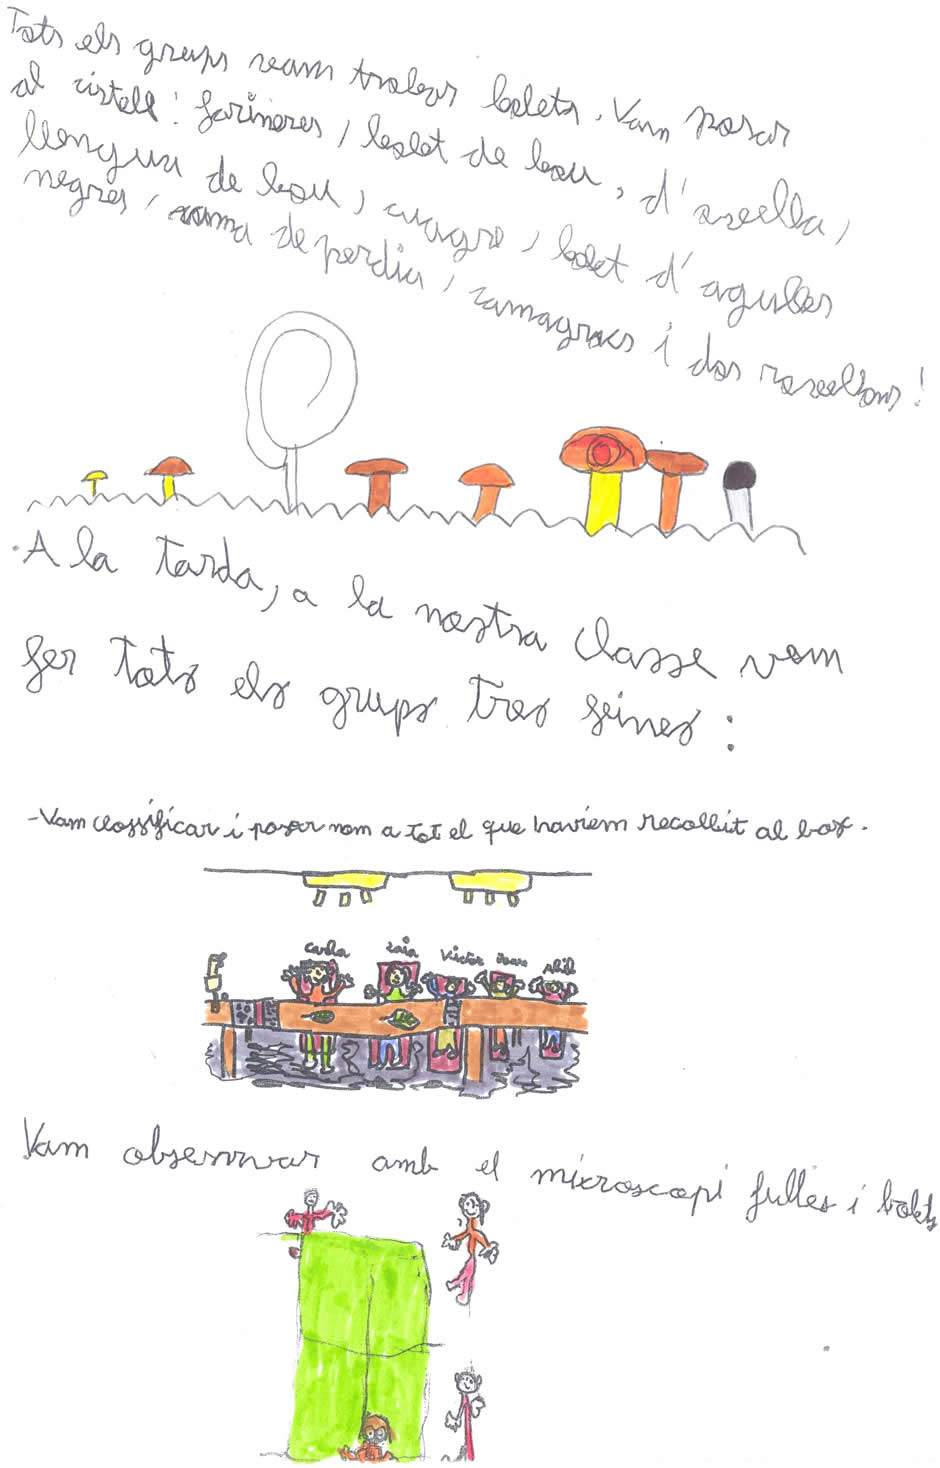 Tots els grups vam trobar bolets. Vam posar
al cistell: farineres, bolet de bou, d'ovella,
llengua de bou, cuagre, bolet d'agulles
negres, cama de perdiu, camagrocs i dos rovellons!
A la tarda, a la nostra classe vam
fer tots els grups tres feines:
-Vam classificar i posar nom a tot el que haviem recollit al bosc.
Carla Laia Víctor Joan
Vam observar amb el microscopi fulles i bolets